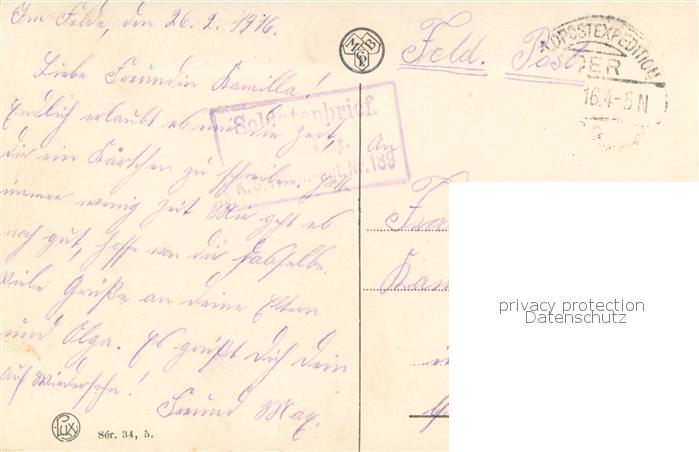 Im Felde, den 26.2.1916.
Liebe Freundin Kamilla!
Endlich erlaubt es mir die Zeit,
dir ein Kärtchen zu schreiben. Habe
immer wenig Zeit. Mir geht es
noch gut, hoffe von dir dasselbe.
Viele Grüße an deine Eltern
und Olga. Es grüßt Dich dein
Auf Wiedersehn!
Freund Max.
Lux
Sér. 34, 5.
Soldatenbrief.
Nr. 189
Feld. Post
DPOSTEXPEDITION
DER
16.4-5N
An
privacy protection
Datenschutz